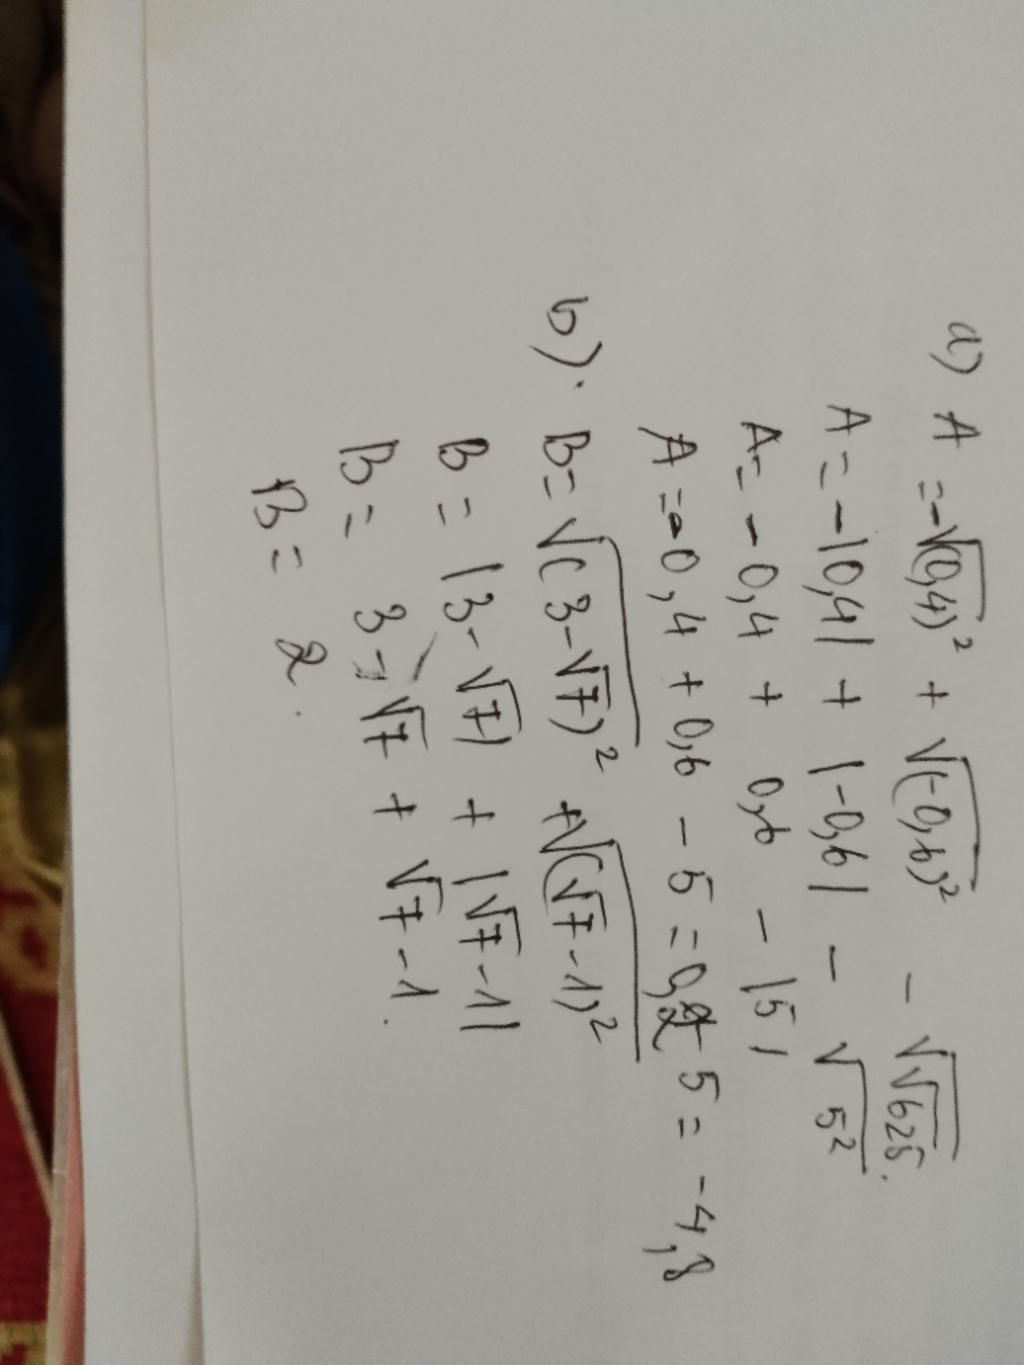 a) A = -√(0,4)² + √(-0,6)² - √√625.
A = -|0,4| + |-0,6| - √5²
A = -0,4 + 0,6 - |5|
A = -0,4 + 0,6 - 5 = 0,2 - 5 = -4,8
b). B = √(3-√7)² + √(√7-1)²
B = |3-√7| + |√7-1|
B = 3-√7 + √7-1.
B = 2.